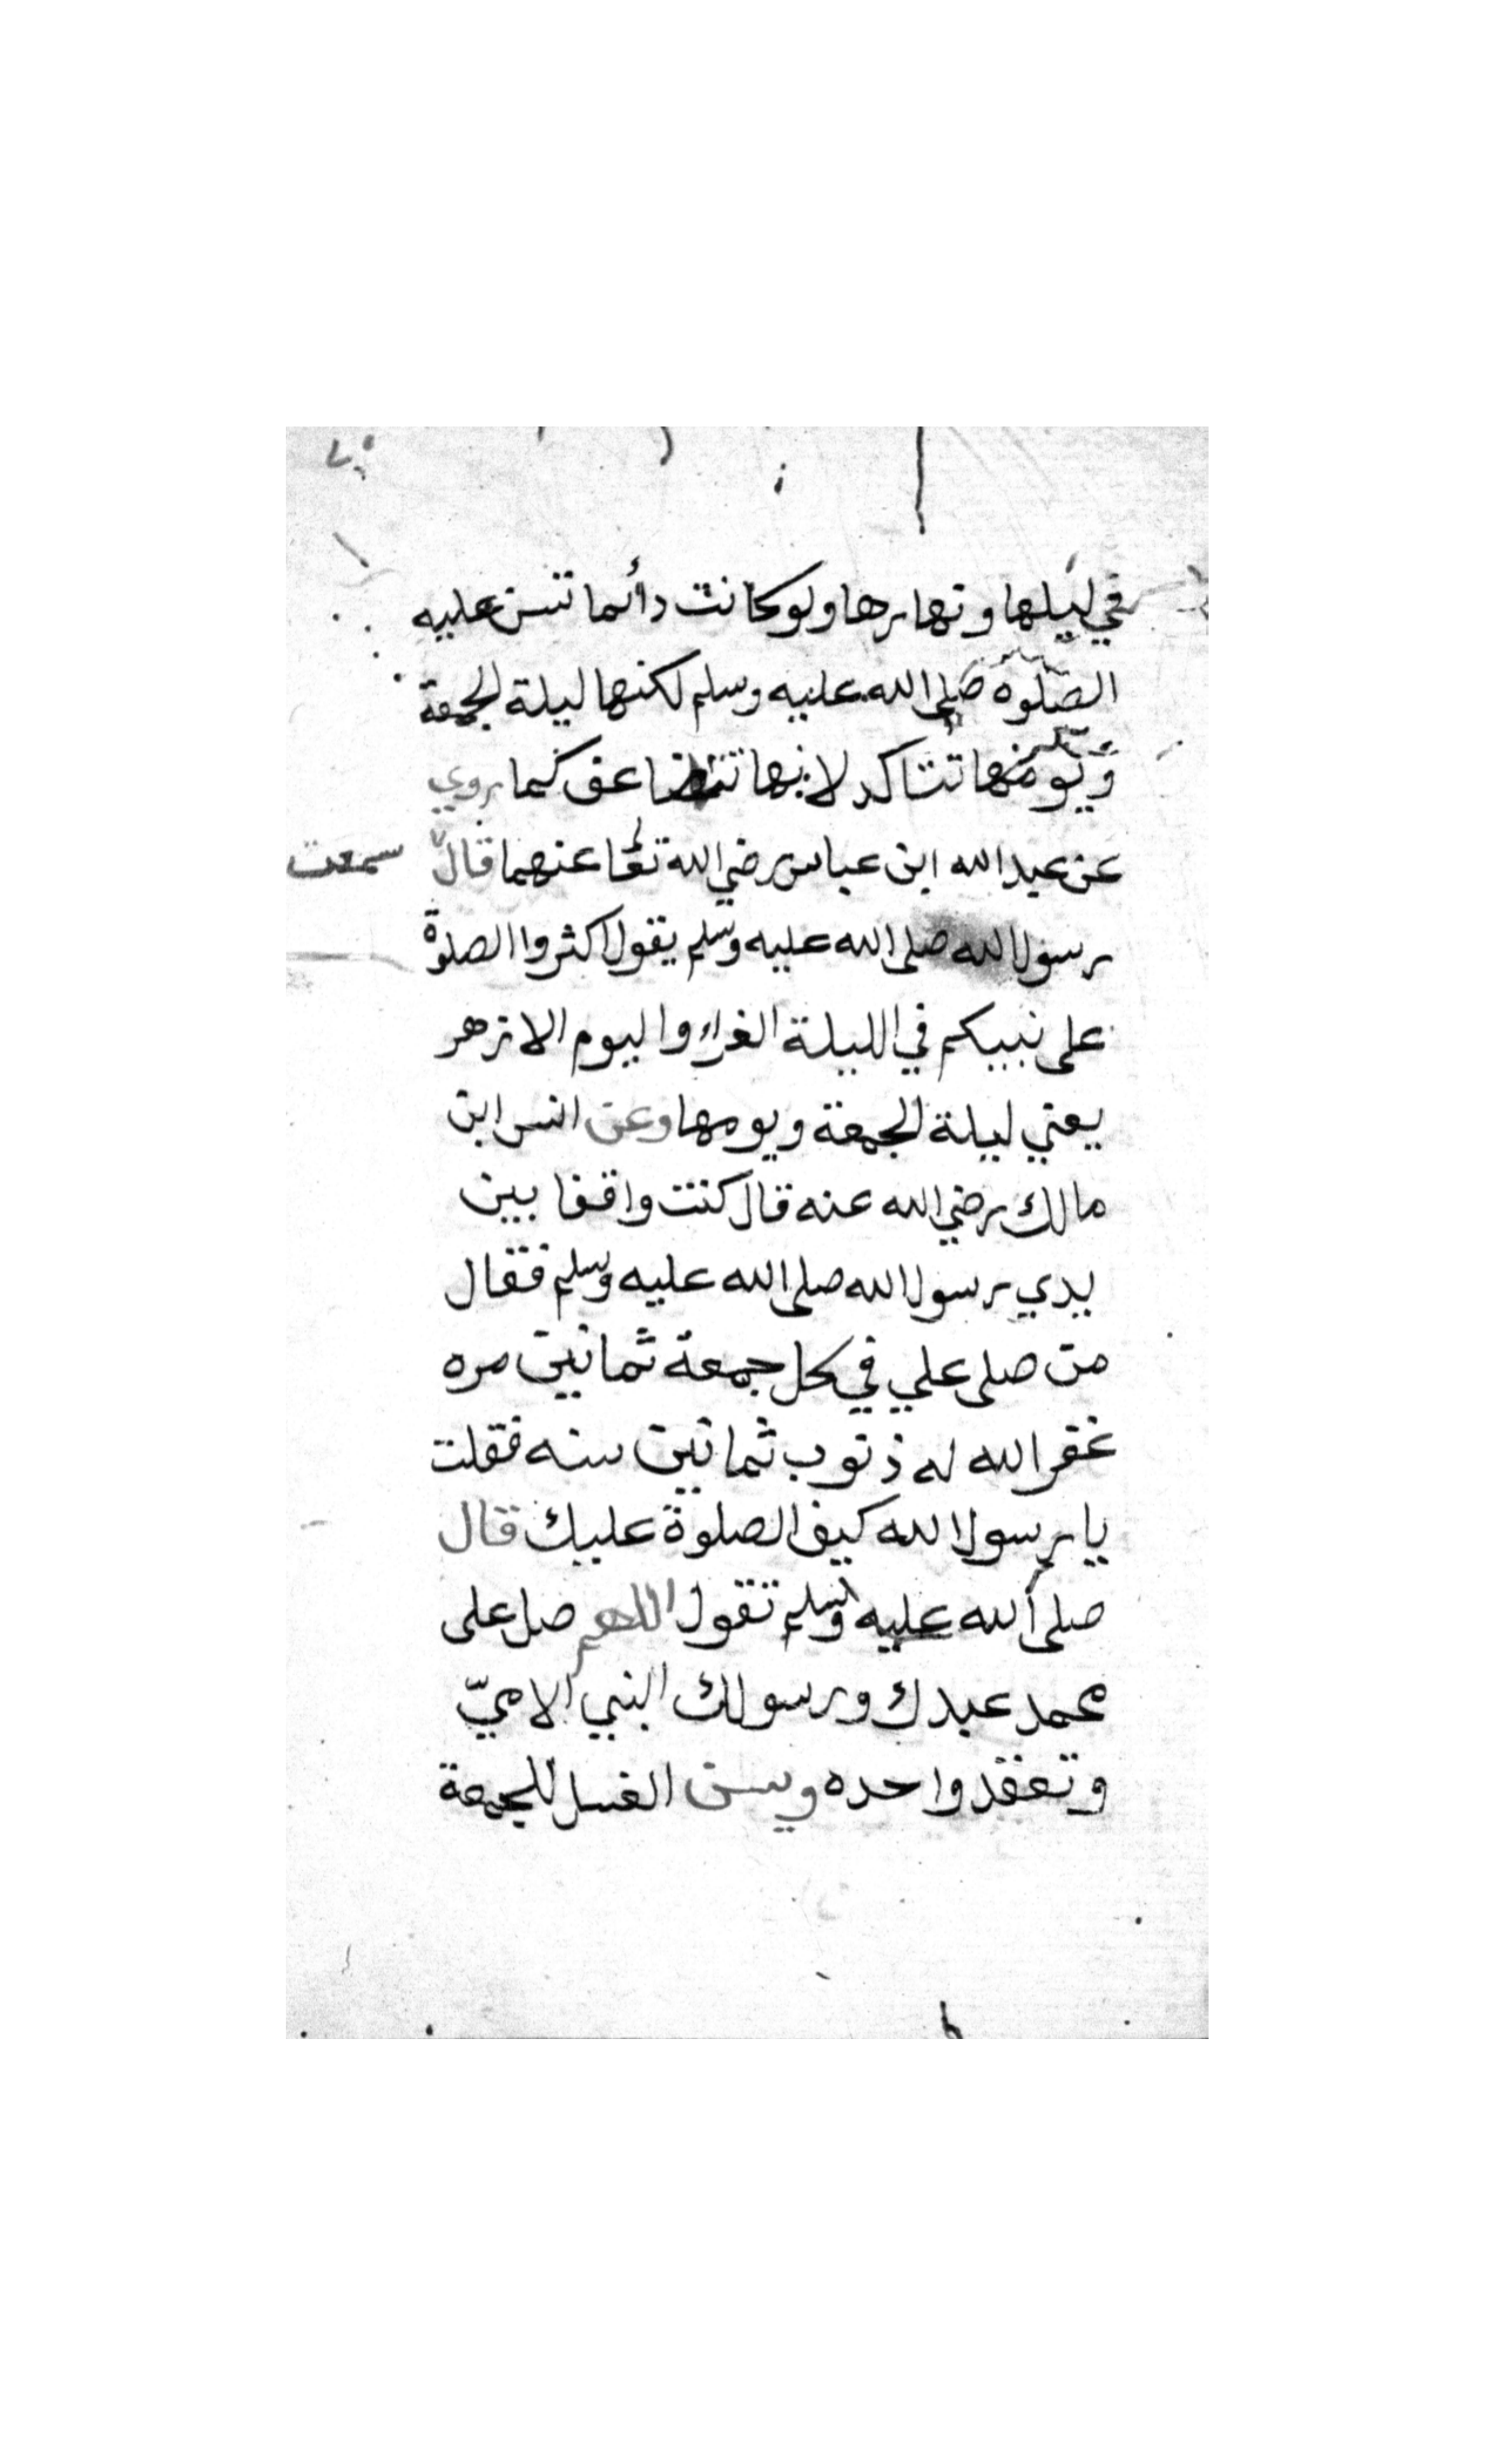 في ليلها ونهارها ولو كانت دائما تسن عليه
الصلوة صلى الله عليه وسلم لكنها ليلة الجمعة
ويومها تتاكد لانها تتضاعف كما روي
عن عبد الله ابن عباس رضي الله تعا عنهما قال سمعت
رسول الله صلى الله عليه وسلم يقول اكثروا الصلوة
على نبيكم في الليلة الغراء واليوم الازهر
يعني ليلة الجمعة ويومها وعن انس ابن
مالك رضي الله عنه قال كنت واقفا بين
يدي رسول الله صلى الله عليه وسلم فقال
من صلى علي في كل جمعة ثمانين مره
غفر الله له ذنوب ثمانين سنه فقلت
يا رسول الله كيف الصلوة عليك قال
صلى الله عليه وسلم تقول اللهم صل على
محمد عبدك ورسولك النبي الاميّ
وتعقد واحده ويسن الغسل للجمعة